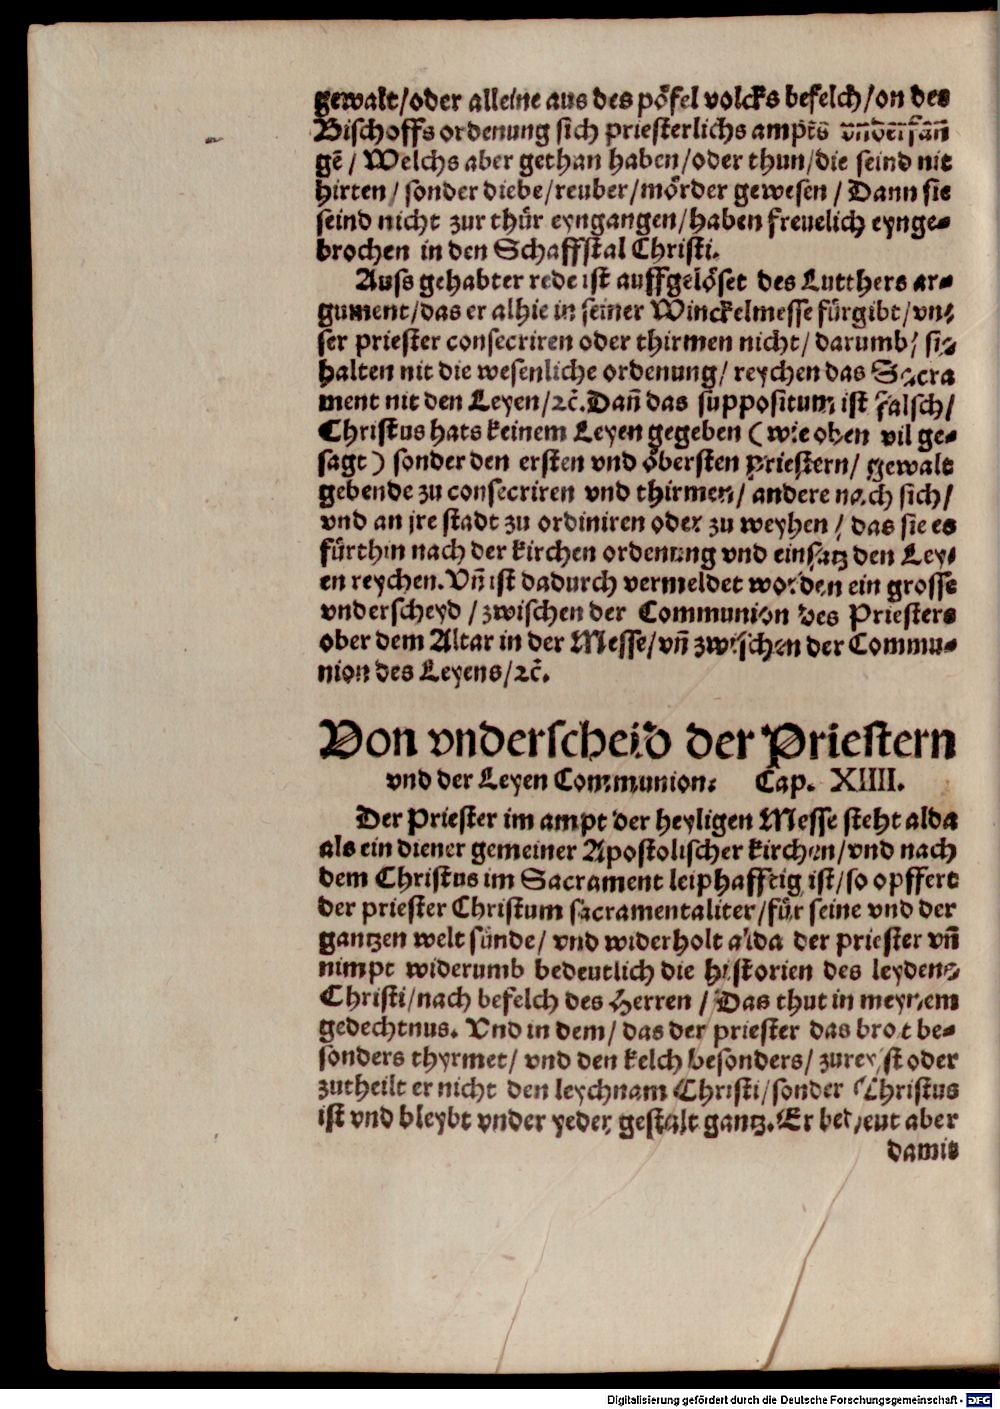 gewalt/oder alleine aus des pöfel volcks befelch/on des
Bischoffs ordenung sich priesterlichs ampts vnderfan
gē/ Welchs aber gethan haben/oder thun/die seind nit
hirten/ sonder diebe/reuber/mörder gewesen/ Dann sie
seind nicht zur thür eyngangen/haben freuelich eynge⸗
brochen in den Schaffstal Christi.
Auss gehabter rede ist auffgelöset des Lutthers ar⸗
gument/das er alhie in seiner Winckelmesse fürgibt/vn⸗
ser priester consecriren oder thirmen nicht/ darumb/ sie
halten nit die wesenliche ordenung/ reychen das Sacra
ment nit den Leyen/ꝛc̄. Dañ das suppositum ist falsch/
Christus hats keinem Leyen gegeben (wie oben vil ge⸗
sagt) sonder den ersten vnd öbersten priestern/ gewalt
gebende zu consecriren vnd thirmen/ andere nach sich/
vnd an jre stadt zu ordiniren oder zu weyhen/ das sie es
fürthin nach der kirchen ordenung vnd einsatz den Ley⸗
en reychen. Vñ ist dadurch vermeldet worden ein grosse
vnderscheyd/ zwischen der Communion des Priesters
ober dem Altar in der Messe/vñ zwischen der Commu⸗
nion des Leyens/ꝛc̄.
Von vnderscheid der Priestern
vnd der Leyen Communion. Cap. XIIII.
Der Priester im ampt der heyligen Messe steht alda
als ein diener gemeiner Apostolischer kirchen/vnd nach
dem Christus im Sacrament leiphafftig ist/so opffert
der priester Christum sacramentaliter/für seine vnd der
gantzen welt sünde/ vnd widerholt alda der priester vñ
nimpt widerumb bedeutlich die historien des leydens
Christi/nach befelch des Herren/ Das thut in meynem
gedechtnus. Vnd in dem/ das der priester das brot be⸗
sonders thyrmet/ vnd den kelch besonders/ zureysst oder
zutheilt er nicht den leychnam Christi/sonder Christus
ist vnd bleybt vnder yeder gestalt gantz. Er bedeut aber
damit
Digitalisierung gefördert durch die Deutsche Forschungsgemeinschaft - DFG